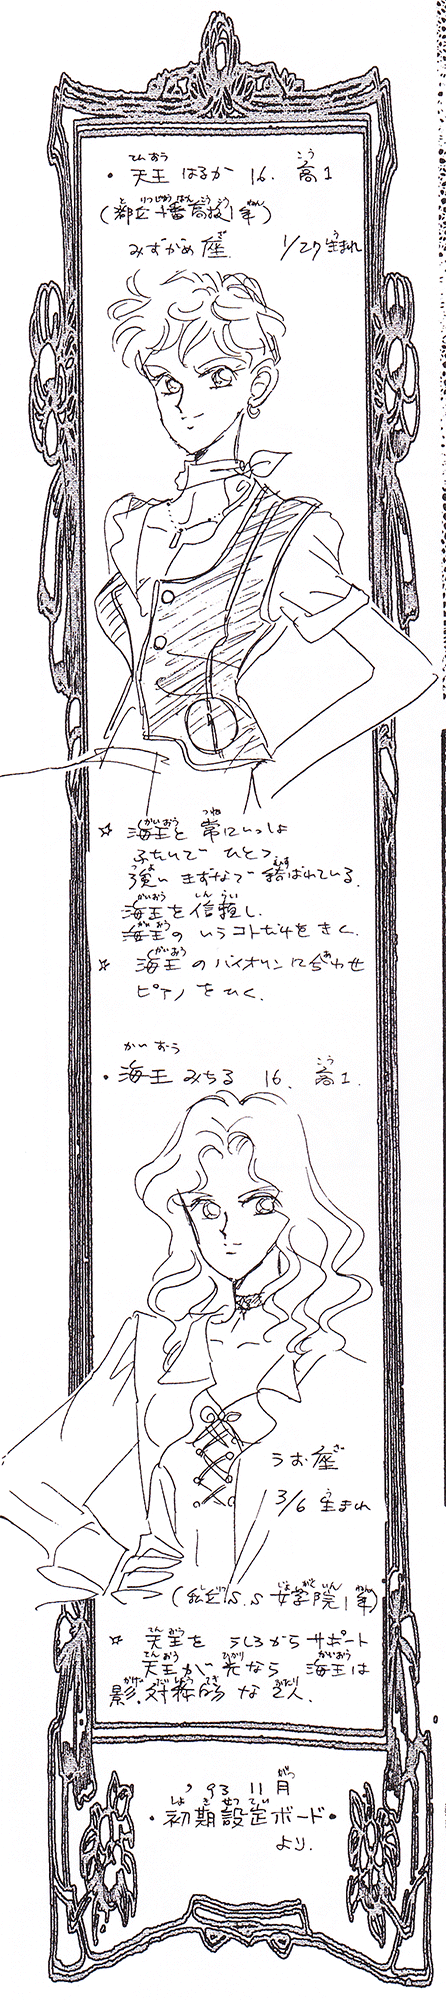 ・天王 はるか 16. 高1
(都立十番高校1年)
みずがめ座. 1/27 生まれ
☆ 海王と 常にいっしょ
ふたりで ひとつ
強い きずなで 結ばれている.
海王を信頼し.
海王の いうコトだけをきく.
☆ 海王のバイオリンに合わせ
ピアノ をひく.
・海王 みちる 16. 高1.
うお座
3/6 生まれ
(私立S.S女学院1年)
☆ 天王を うしろからサポート
天王が 光なら 海王は
影.対称的な2人.
'93 11月
・初期設定ボード・
より.